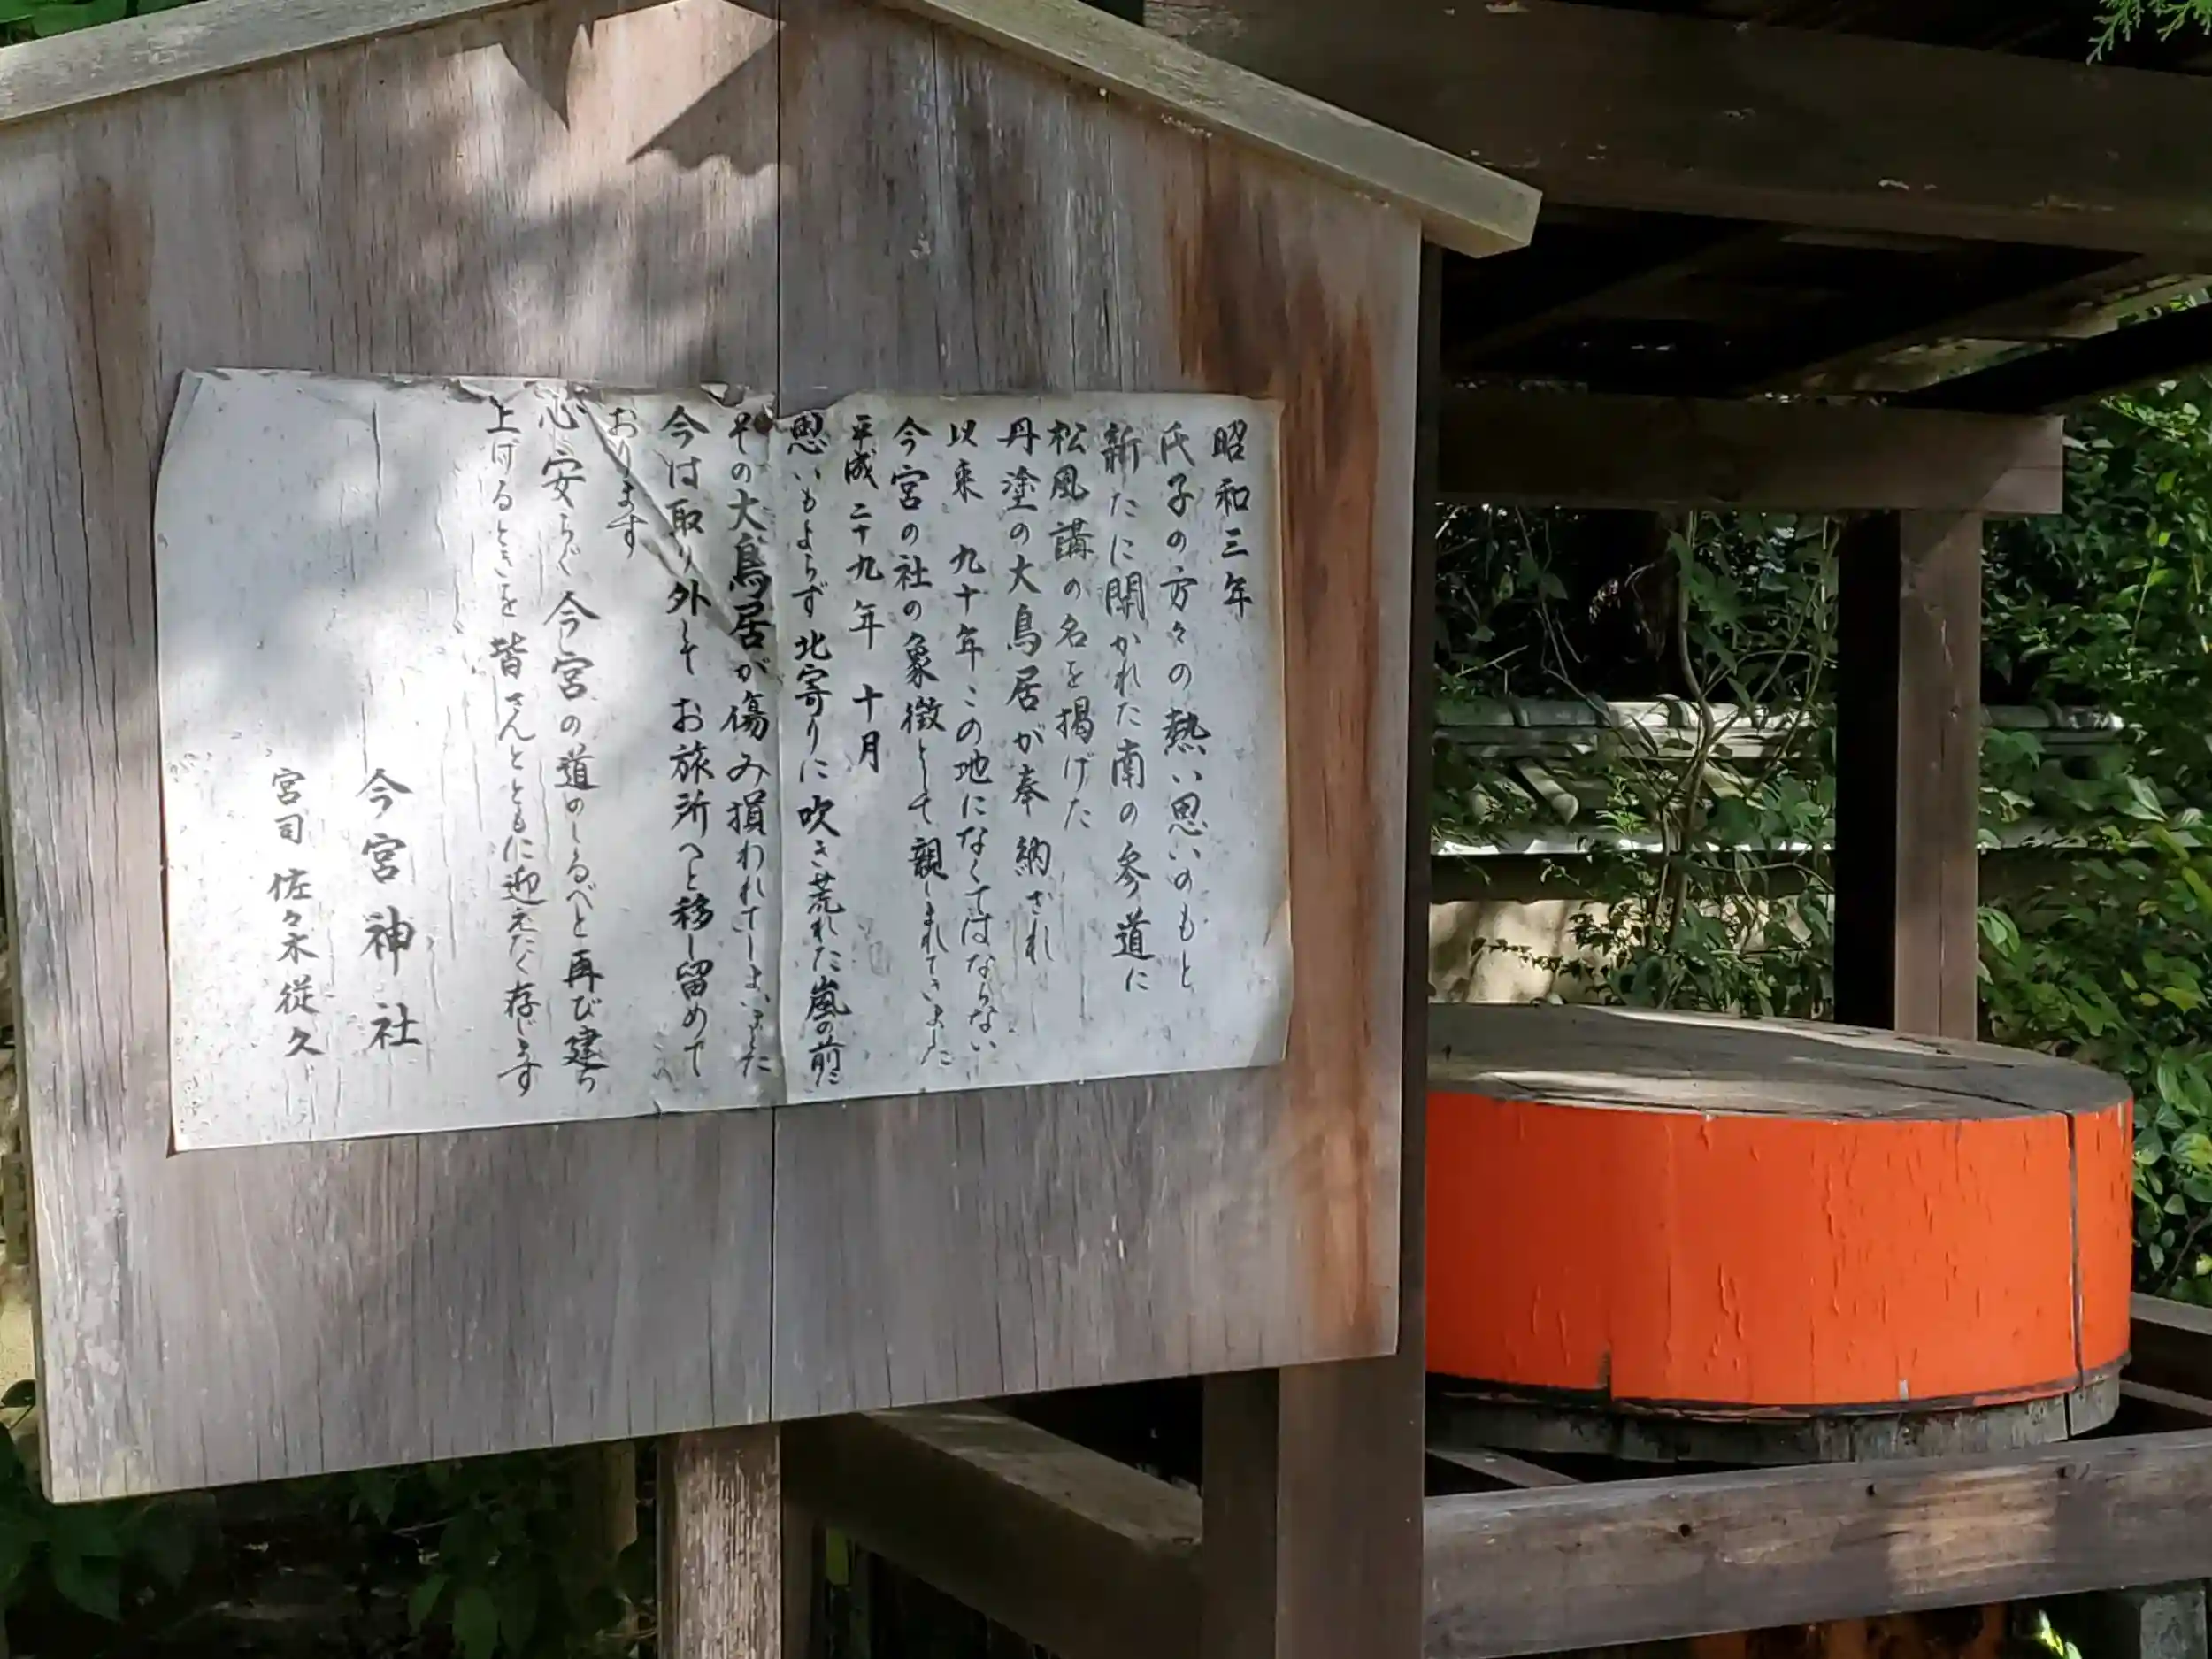 昭和三年
氏子の方々の熱い思いのもと
新たに開かれた南の参道に
松風講の名を掲げた
丹塗の大鳥居が奉納され
以来 九十年この地になくてはならない
今宮の社の象徴として親しまれていました
平成二十九年 十月
思いもよらず北寄りに吹き荒れた嵐の前に
その大鳥居が傷み損われてしまいました
今は取り外して お旅所へと移し留めて
おります
心安らぐ今宮の道のしるべと再び建ち
上げるときを皆さんとともに迎えたく存じます
今宮神社
宮司 佐々木従久